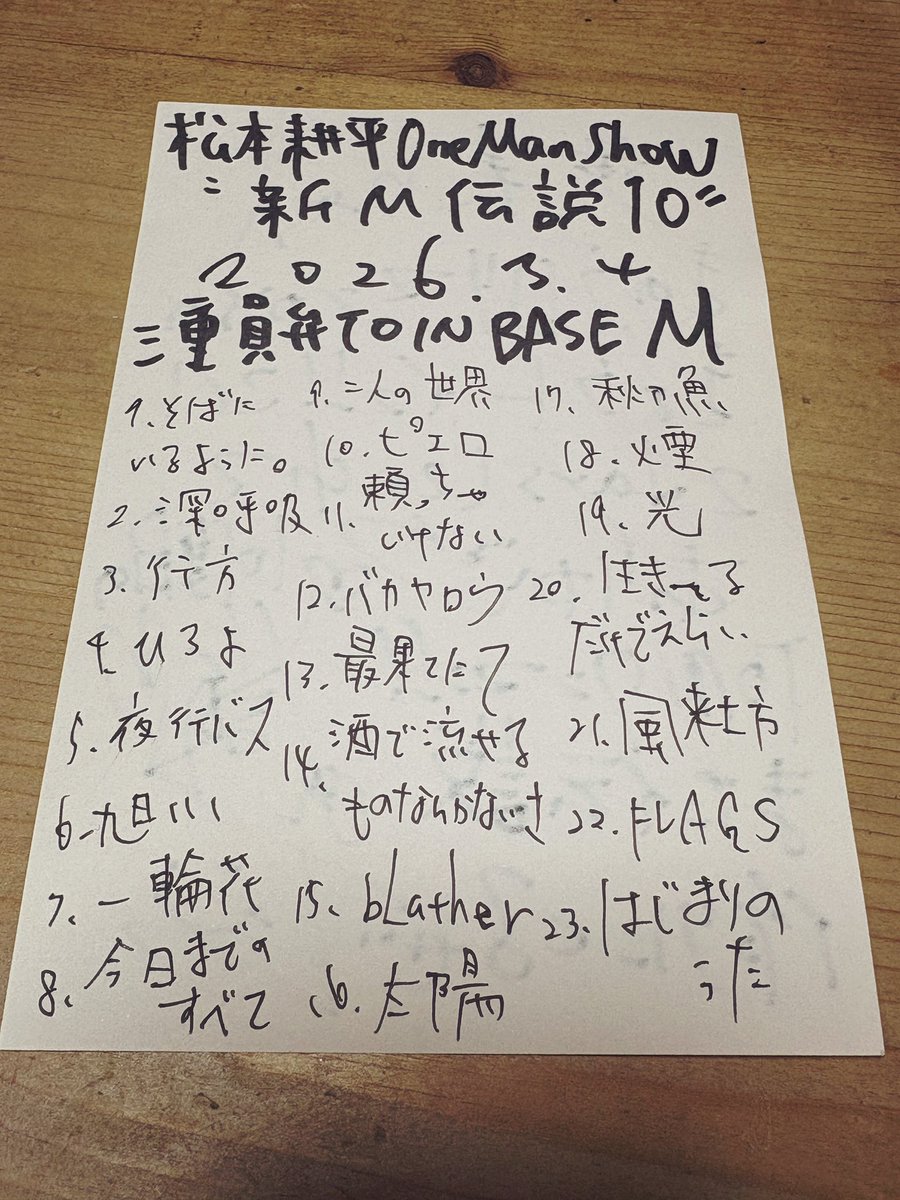 松本耕平OneManShow
"新M伝説10"
2026.3.4
三重員弁TOIN BASE M
1.そばに
いるように。
2.深呼吸
3.行方
4.ひろよ
5.夜行バス
6.旭川
7.一輪花
8.今日までの
すべて
9.二人の世界
10.ピエロ
11.頼っちゃ
いけない
12.バカヤロウ
13.最果てにて
14.酒で流せる
ものなんかないさ
15.blather
16.太陽
17.秋刀魚
18.煙
19.光
20.生きてる
だけでえらい
21.風来坊
22.FLAGS
23.はじまりの
うた